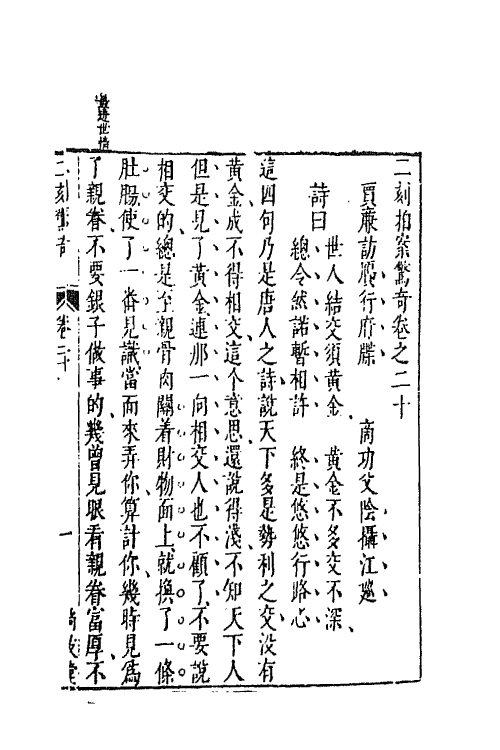 二刻拍案驚奇卷之二十
賈廉訪贋行府牒　商功父陰攝江廵
詩曰
世人結交須黃金　黃金不多交不深
總令然諾暫相許　終是悠悠行路心
這四句乃是唐人之詩說天下多是勢利之交沒有
黃金成不得相交這个意思還說得淺不知天下人
但是見了黃金連那一向相交人也不顧了不要說
相交的總是至親骨肉關着財物面上就換了一條
肚腸使了一畨見識當面來弄你算計你幾時見爲
了親眷不要銀子做事的幾曾見眼看親眷富厚不
最透世情
二刻驚奇　卷二十　一　尚友堂